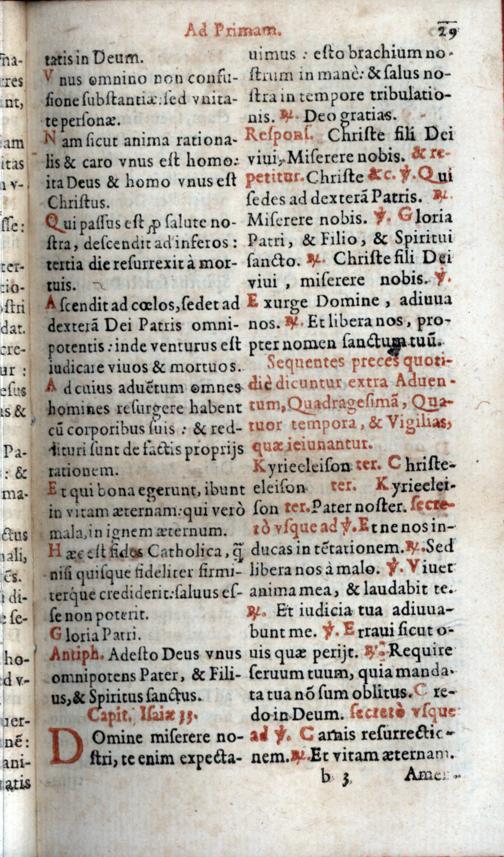 Ad Primam. 29
tatis in Deum.
Vnus omnino non confu-
sione substantiæ: sed vnita-
te personæ.
Nam sicut anima rationa-
lis & caro vnus est homo:
ita Deus & homo vnus est
Christus.
Qui passus est ꝓ salute no-
stra, descendit ad inferos :
tertia die resurrexit à mor-
tuis.
Ascendit ad cœlos, sedet ad
dexterã Dei Patris omni-
potentis : inde venturus est
iudicare viuos & mortuos.
Ad cuius aduẽtum omnes
homines resurgere habent
cũ corporibus suis : & red-
dituri sunt de factis proprijs
rationem.
Et qui bona egerunt, ibunt
in vitam æternam: qui verò
mala, in ignem æternum.
Hæc est fides Catholica, q̃
nisi quisque fideliter firmi-
terque crediderit: saluus es-
se non poterit.
Gloria Patri.
Antiph. Adesto Deus vnus
omnipotens Pater, & Fili-
us, & Spiritus sanctus.
Capit. Isaiæ 33.
Domine miserere no-
stri, te enim expecta-
uimus : esto brachium no-
strum in manè: & salus no-
stra in tempore tribulatio-
nis. ℟. Deo gratias.
Respons. Christe fili Dei
viui, Miserere nobis. & re-
petitur. Christe &c. ℣. Qui
sedes ad dexterã Patris. ℟.
Miserere nobis. ℣. Gloria
Patri, & Filio, & Spiritui
sancto. ℟. Christe fili Dei
viui , miserere nobis. ℣.
Exurge Domine , adiuua
nos. ℟. Et libera nos, pro-
pter nomen sanctum tuũ.
Sequentes preces quoti-
diè dicuntur extra Aduen-
tum, Quadragesimã, Qua-
tuor tempora, & Vigilias,
quæ ieiunantur.
Kyrieeleison ter. Christe-
eleison ter. Kyrieelei-
son ter. Pater noster. secre-
tò vsque ad ℣. Et ne nos in-
ducas in tẽtationem. ℟. Sed
libera nos à malo. ℣. Viuet
anima mea, & laudabit te.
℟. Et iudicia tua adiuua-
bunt me. ℣. Erraui sicut o-
uis quæ perijt. ℟. Require
seruum tuum, quia manda-
ta tua nõ sum oblitus. Cre-
do in Deum. secretò vsque
ad ℣. Carnis resurrectio-
nem. ℟. Et vitam æternam.
b 3 Amen.